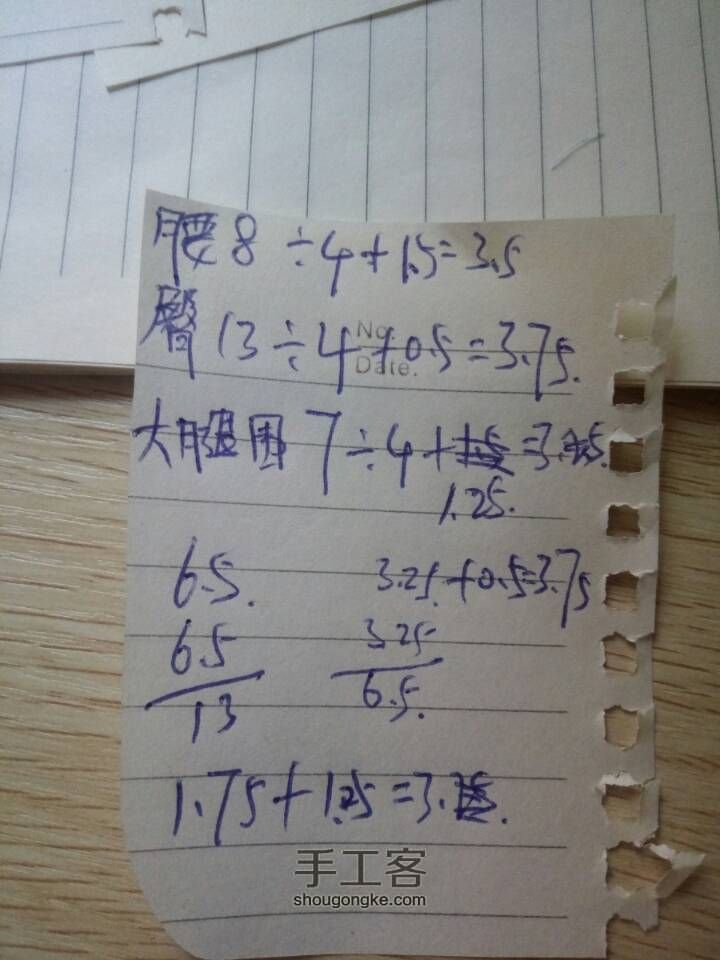 腰 8 ÷4+1.5=3.5
臀 13÷4+0.5=3.75.
No.
Date.
大腿围 7÷4+ =3.
1.25.
6.5. 3.25.+0.5=3.75
6.5 3.25
13 6.5.
1.75+1.25=3.
手工客
shougongke.com